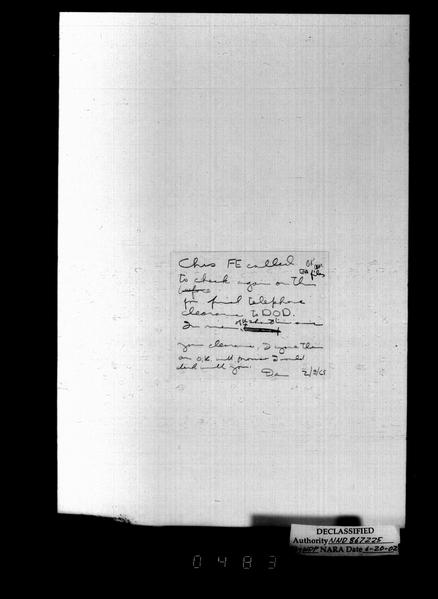 Chris FE called
files
to check again on this
before
for final telephone
clearance to DOD.
In view of the
your clearance, I gave them
an O.K. and promised I would
check with you.
Dan 2/9/65
DECLASSIFIED
Authority NND 867225
NARA Date 6-20-02
0483